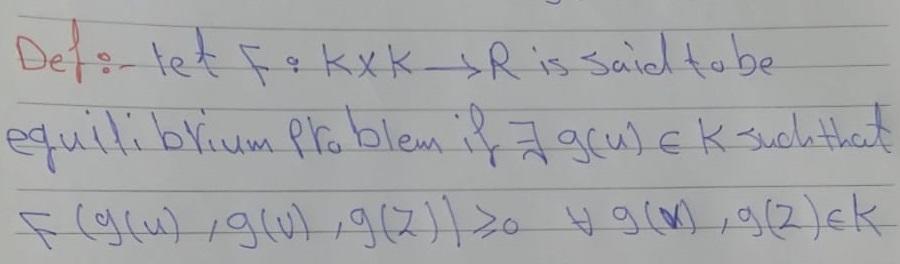 Def:- let F: K×K→R is said to be
equilibrium Problem if ∃ g(u) ∈ K such that
F(g(u), g(v), g(z)) ≥ 0 ∀ g(v), g(z) ∈ K